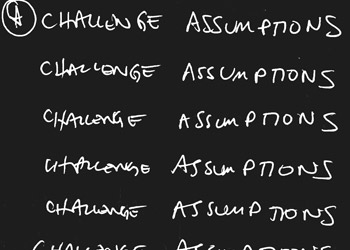 A CHALLENGE ASSUMPTIONS
CHALLENGE ASSUMPTIONS
CHALLENGE ASSUMPTIONS
CHALLENGE ASSUMPTIONS
CHALLENGE ASSUMPTIONS
CHALLENGE ASSUMPTIONS